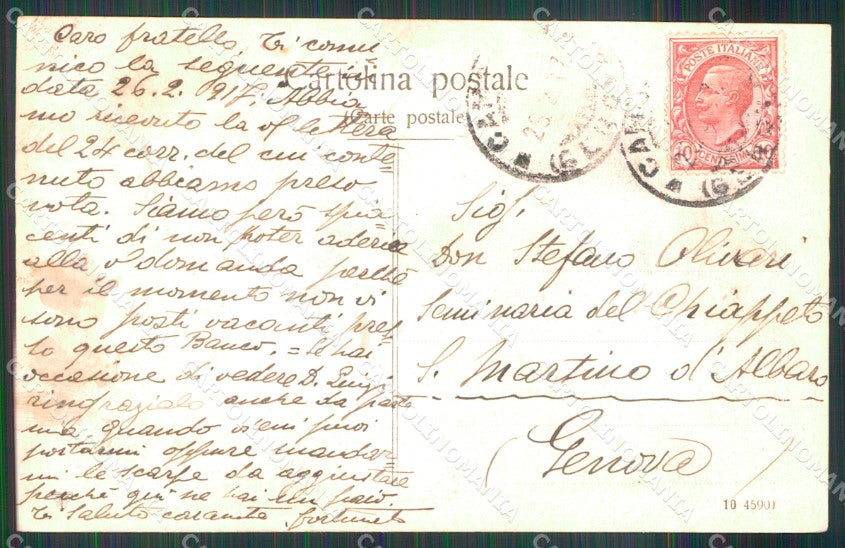 Caro fratello, Ti comu
nico la seguente in
data 26.2.917. Abbia
mo ricevuto la vs/ lettera
del 24 corr. del cui conte=
nuto abbiamo preso
nota. Siamo però spia
centi di non poter aderire
alla v/ domanda perchè
per il momento non vi
sono posti vacanti pres
so questo Banco. = Se hai
occasione di vedere D. Luigi
ringrazialo anche da parte
mia, quando vieni puoi
portarmi oppure mandar
mi le scarpe da aggiustare
perchè qui ne hai un paio.
Ti Saluto caramte fortunato
Cartolina postale
(Carte postale)
POSTE ITALIANE
10 CENTESIMI
Sig.
Don Stefano Olivari
Seminario del Chiappeto
S. Martino d'Albaro
(Genova)
10 45901
CARTOLINOMANIA